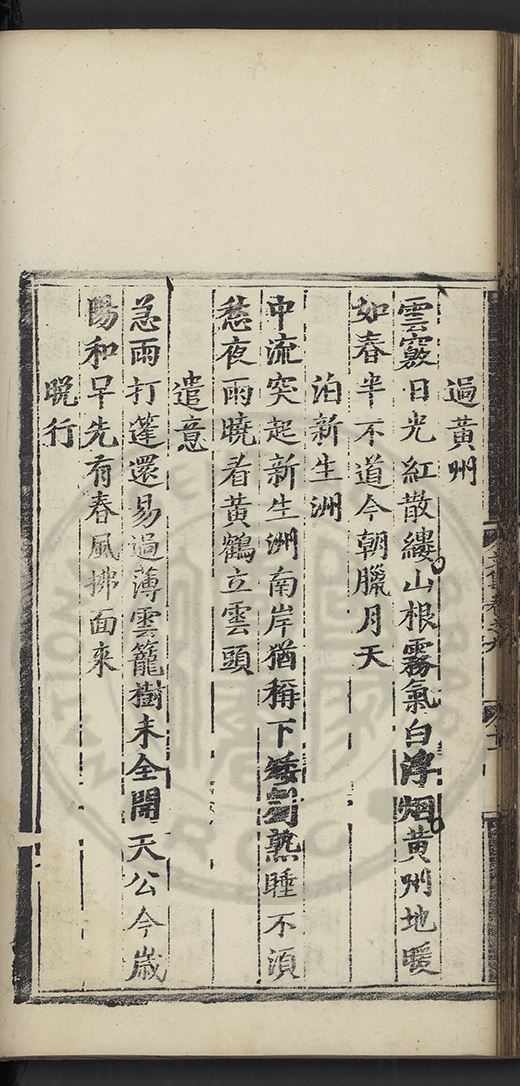 過黃州
雲竅日光紅散縷山根霧氣白浮烟黃州地暖
如春半不道今朝臘月天
泊新生洲
中流突起新生洲南岸猶稱下熟睡不湏
愁夜雨曉看黃鶴立雲頭
遣意
急雨打篷還易過薄雲籠樹未全開天公今歲
陽和早先有春風拂面來
晩行